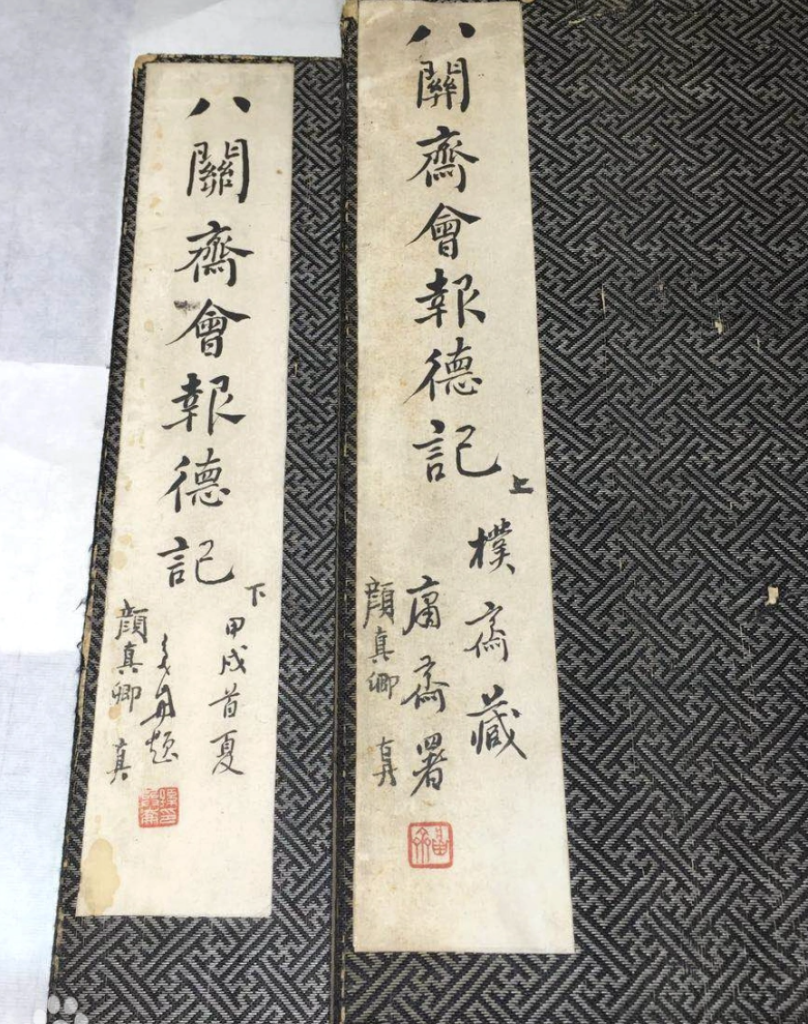 八關齋會報德記
上
樸齋藏
庸齋署
顔真卿 真
八關齋會報德記
下
甲戌首夏
題
顔真卿 真